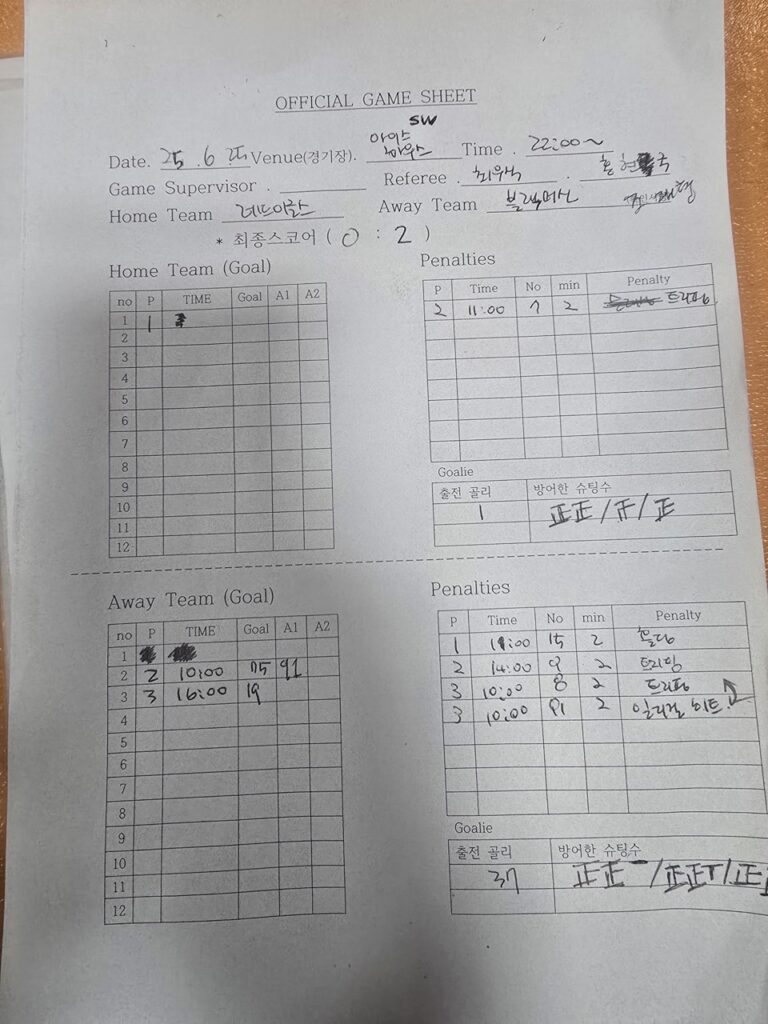 OFFICIAL GAME SHEET
SW
Date. 25 . 6 25 Venue(경기장). 아이스하우스 Time . 22:00~
Game Supervisor . Referee . 최우석 . 현국
Home Team 레드이글스 Away Team 블랙
* 최종스코어 ( 0 : 2 )
Home Team (Goal)
no P TIME Goal A1 A2
1 1
2
3
4
5
6
7
8
9
10
11
12
Penalties
P Time No min Penalty
2 11:00 7 2 트리핑
Goalie
출전 골리 방어한 슈팅수
1 正正 / 正 / 正
Away Team (Goal)
no P TIME Goal A1 A2
1
2 2 10:00 75 91
3 3 16:00 19
4
5
6
7
8
9
10
11
12
Penalties
P Time No min Penalty
1 19:00 15 2 홀딩
2 14:00 9 2 트리핑
3 10:00 8 2 트리핑
3 10:00 91 2 일리걸 히트
Goalie
출전 골리 방어한 슈팅수
37 正正一 / 正正T / 正